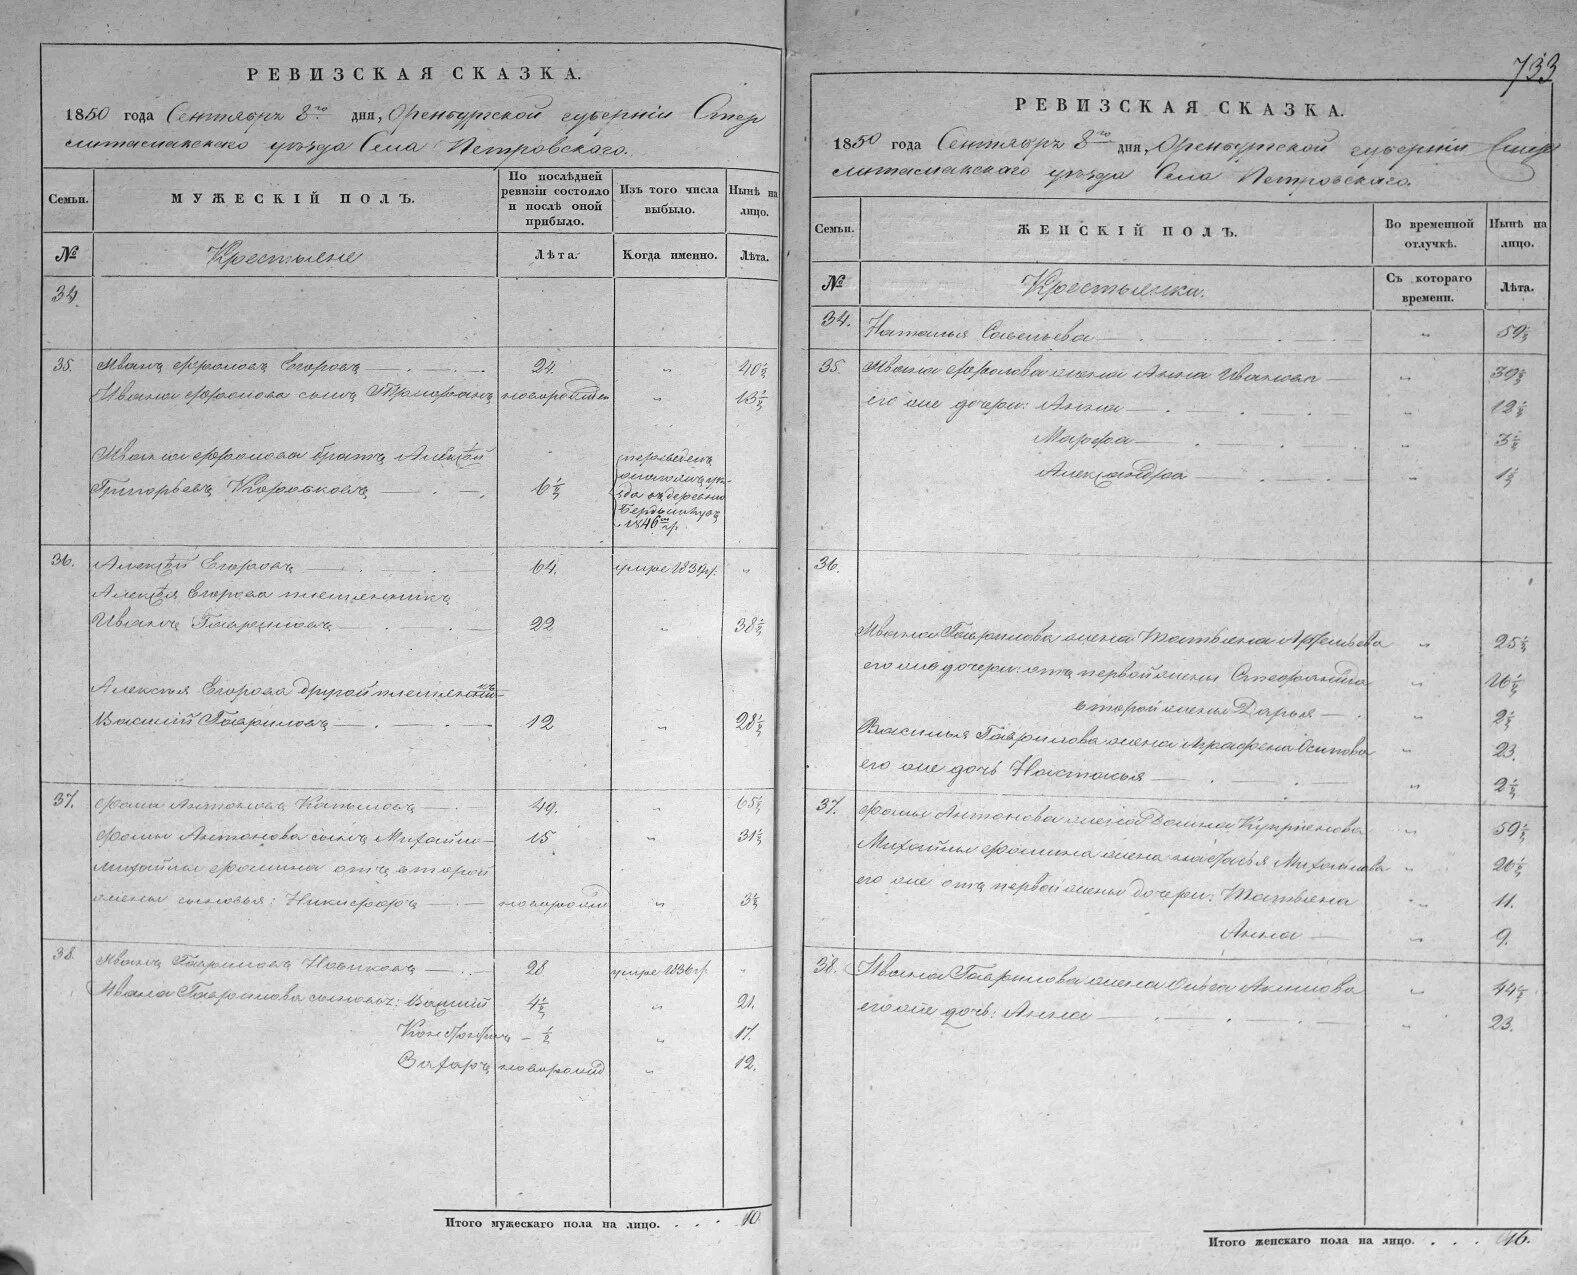 РЕВИЗСКАЯ СКАЗКА.
1850 года Сентября 8го дня, Оренбургской губерніи Стер
литамакскаго уѣзда Села Петровскаго.
Семьи.
МУЖЕСКІЙ ПОЛЪ.
По послѣдней ревизіи состояло и послѣ оной прибыло.
Изъ того числа выбыло.
Нынѣ на лицо.
№
Крестьяне
Лѣта.
Когда именно.
Лѣта.
34.
35. Иванъ Фроловъ Егоровъ 24 " 40½
Ивана Фролова сынъ новорожден " 13½
Ивана Фролова братъ Алексѣй
Григорьевъ 6½
переведенъ
въ деревню
1846го г.
36. Алексѣй Егоровъ 64. умре 1839 г. "
Алексѣя Егорова племянникъ
Иванъ Гавриловъ 22 " 38½
Алексѣя Егорова другой племянникъ
Василій Гавриловъ 12 " 28½
37. Фома Антоновъ 49. " 65½
Фомы Антонова сынъ Михайло 15 " 31½
Михайлы Фомина отъ второй
жены сыновья: Никифоръ новорожд " 3½
38. Иванъ Гавриловъ Новиковъ 28 умре 1836 г. "
Ивана Гаврилова сыновья: Василій 4½ " 21.
½ " 17.
Захаръ новорожд " 12.
Итого мужескаго пола на лицо. . . . 10.
733
РЕВИЗСКАЯ СКАЗКА.
1850 года Сентября 8го дня, Оренбургской губерніи Стер
литамакскаго уѣзда Села Петровскаго.
Семьи.
ЖЕНСКІЙ ПОЛЪ.
Во временной отлучкѣ.
Нынѣ на лицо.
№
Крестьянки.
Съ котораго времени.
Лѣта.
34. Наталья Савельева " 59½
35. Ивана Фролова жена Анна Иванова " 39½
его же дочери: Анна " 12½
Марфа " 3½
Александра " 1½
36.
Ивана Гаврилова жена Татьяна " 25½
его же дочери: отъ первой жены Степанида " 16½
второй жены Дарья " 2½
Василья Гаврилова жена Аграфена Осипова " 23.
его же дочь Настасья " 2½
37. Фомы Антонова жена " 59½
Михайлы Фомина жена Настасья Михайлова " 26½
его же отъ первой жены дочери: Татьяна " 11.
Анна " 9.
38. Ивана Гаврилова жена Ольга " 44½
его же дочь: Анна " 23.
Итого женскаго пола на лицо. . . . 16.